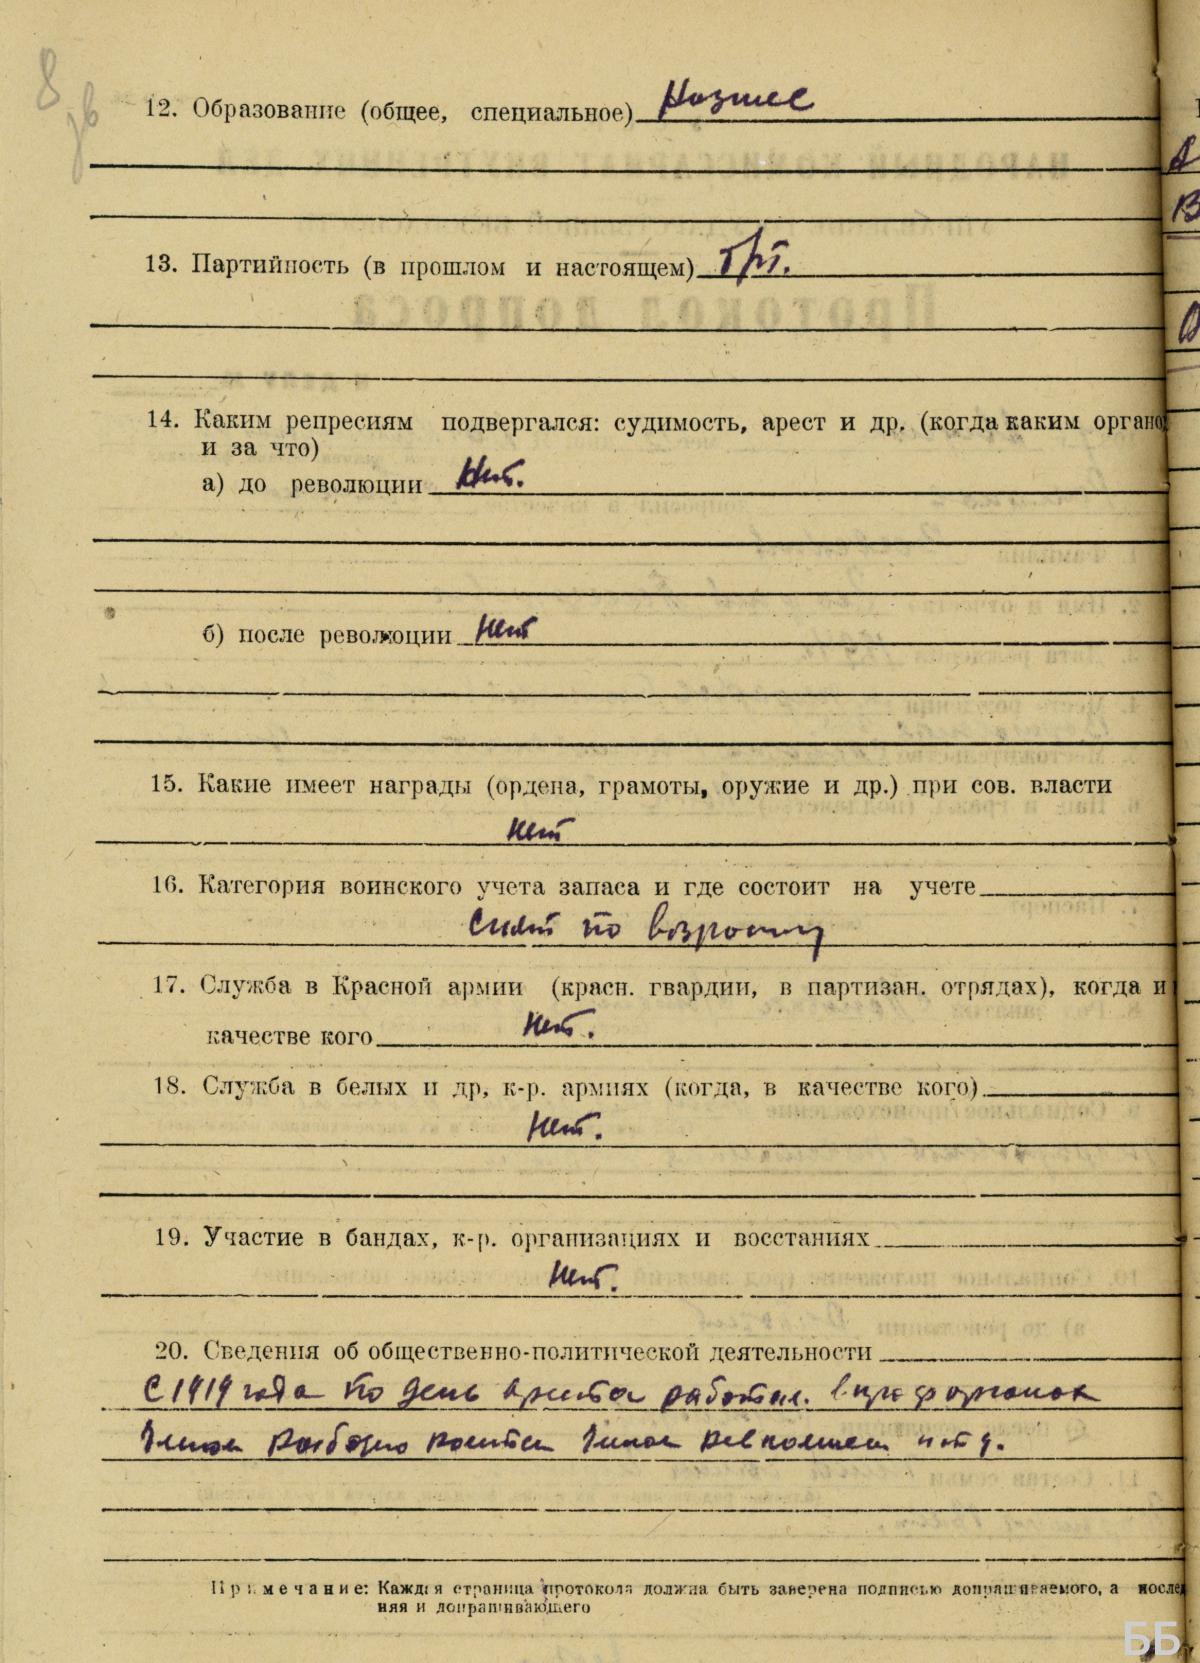 8
12. Образование (общее, специальное) Низшее
13. Партийность (в прошлом и настоящем)
14. Каким репресиям подвергался: судимость, арест и др. (когда каким органо
и за что)
а) до революции Нет.
б) после революции Нет
15. Какие имеет награды (ордена, грамоты, оружие и др.) при сов. власти
нет
16. Категория воинского учета запаса и где состоит на учете
Снят по возрасту
17. Служба в Красной армии (красн. гвардии, в партизан. отрядах), когда и
качестве кого Нет.
18. Служба в белых и др, к-р. армиях (когда, в качестве кого)
Нет.
19. Участие в бандах, к-р. организациях и восстаниях
Нет.
20. Сведения об общественно-политической деятельности
С 1919 года по день ареста работал в
Член Член ревкомиссии и т д.
Примечание: Каждая страница протокола должна быть заверена подписью допрашиваемого, а послед
няя и допрашивающего
ББ